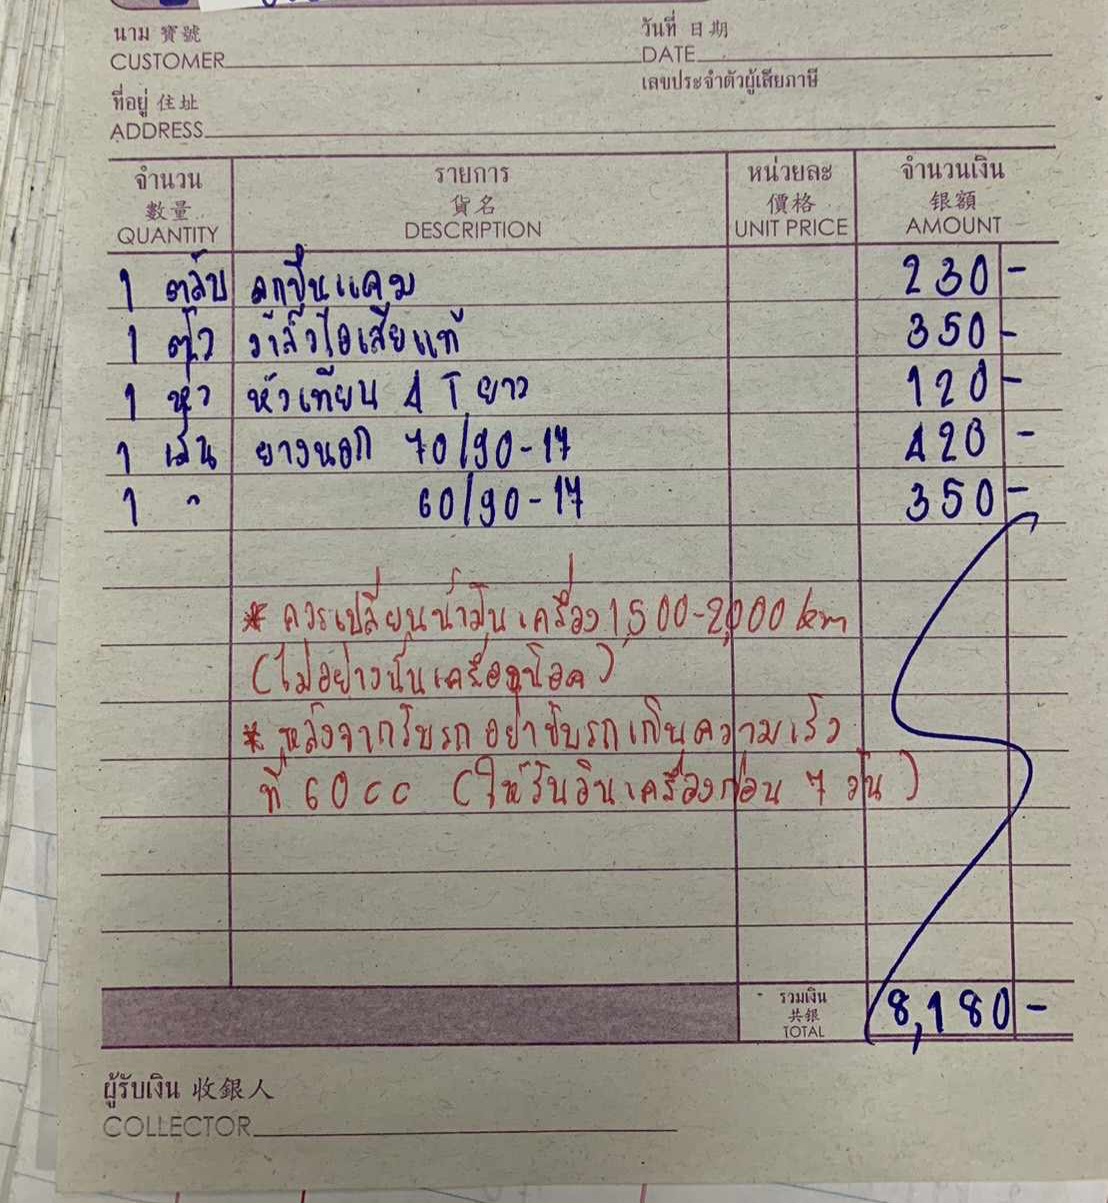 นาม 寶號
วันที่ 日期
CUSTOMER
DATE
เลขประจำตัวผู้เสียภาษี
ที่อยู่ 住址
ADDRESS
จำนวน รายการ หน่วยละ จำนวนเงิน
數量 貨名 價格 银額
QUANTITY DESCRIPTION UNIT PRICE AMOUNT
1 ตลับ ลูกปืนแคม 230-
1 ตัว วาล์วไอเสียแท้ 350-
1 หัว หัวเทียน 4T ยาว 120-
1 เส้น ยางนอก 70/90-17 420-
1 " 60/90-17 350-
* ควรเปลี่ยนน้ำมันเครื่อง 1,500-2,000 km
(ไม่อย่างนั้นเครื่องน็อค)
* หลังจากรับรถ อย่าขับรถเกินความเร็ว
ที่ 60 cc (ให้รันอินเครื่องก่อน 7 วัน)
รวมเงิน
共银
TOTAL
8,180-
ผู้รับเงิน 收銀人
COLLECTOR